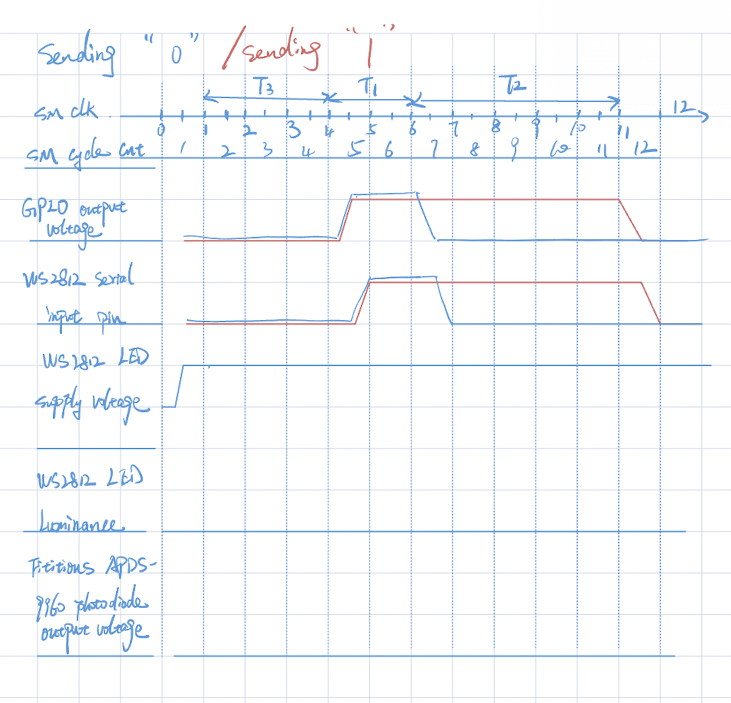 Sending "0" / sending "1"
T3 T1 T2
SM clk 12
0 1 2 3 4 5 6 7 8 9 10 11
SM cycle cnt 1 2 3 4 5 6 7 8 9 10 11 12
GPIO output
voltage
WS2812 Serial
input pin
WS2812 LED
supply voltage
WS2812 LED
Luminance
Fititions APDS-
9960 photodiode
output voltage